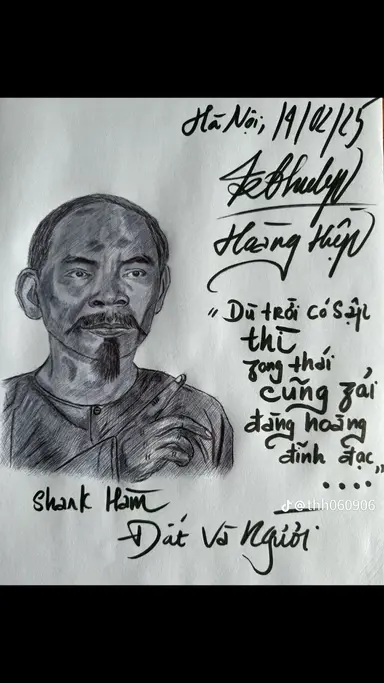 Hà Nội, 19/02/25
Hoàng Hiệp
"Dù trời có sập
thì
zong thái
cũng zải
đàng hoàng
đĩnh đạc"
....
Shank Hàm
Đất Và Người
@thh060906